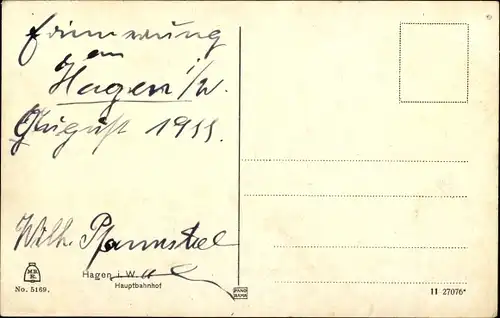 Erinnerung
an
Hagen i/W.
August 1911.
Wilh. Pfannstiel
M.B.
K.
No. 5169.
Hagen i. W.
Hauptbahnhof
PANO
RAMA
11 27076*